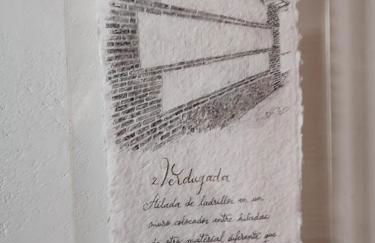 2. Verdugada
Hilada de ladrillos en un
muro colocados entre hiladas
de otro material diferente que